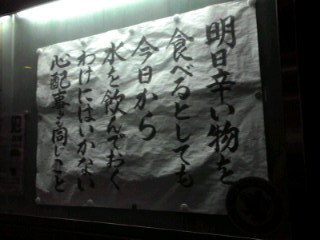 明日辛い物を
食べるとしても
今日から
水を飲んでおく
わけにはいかない
心配事も同じこと